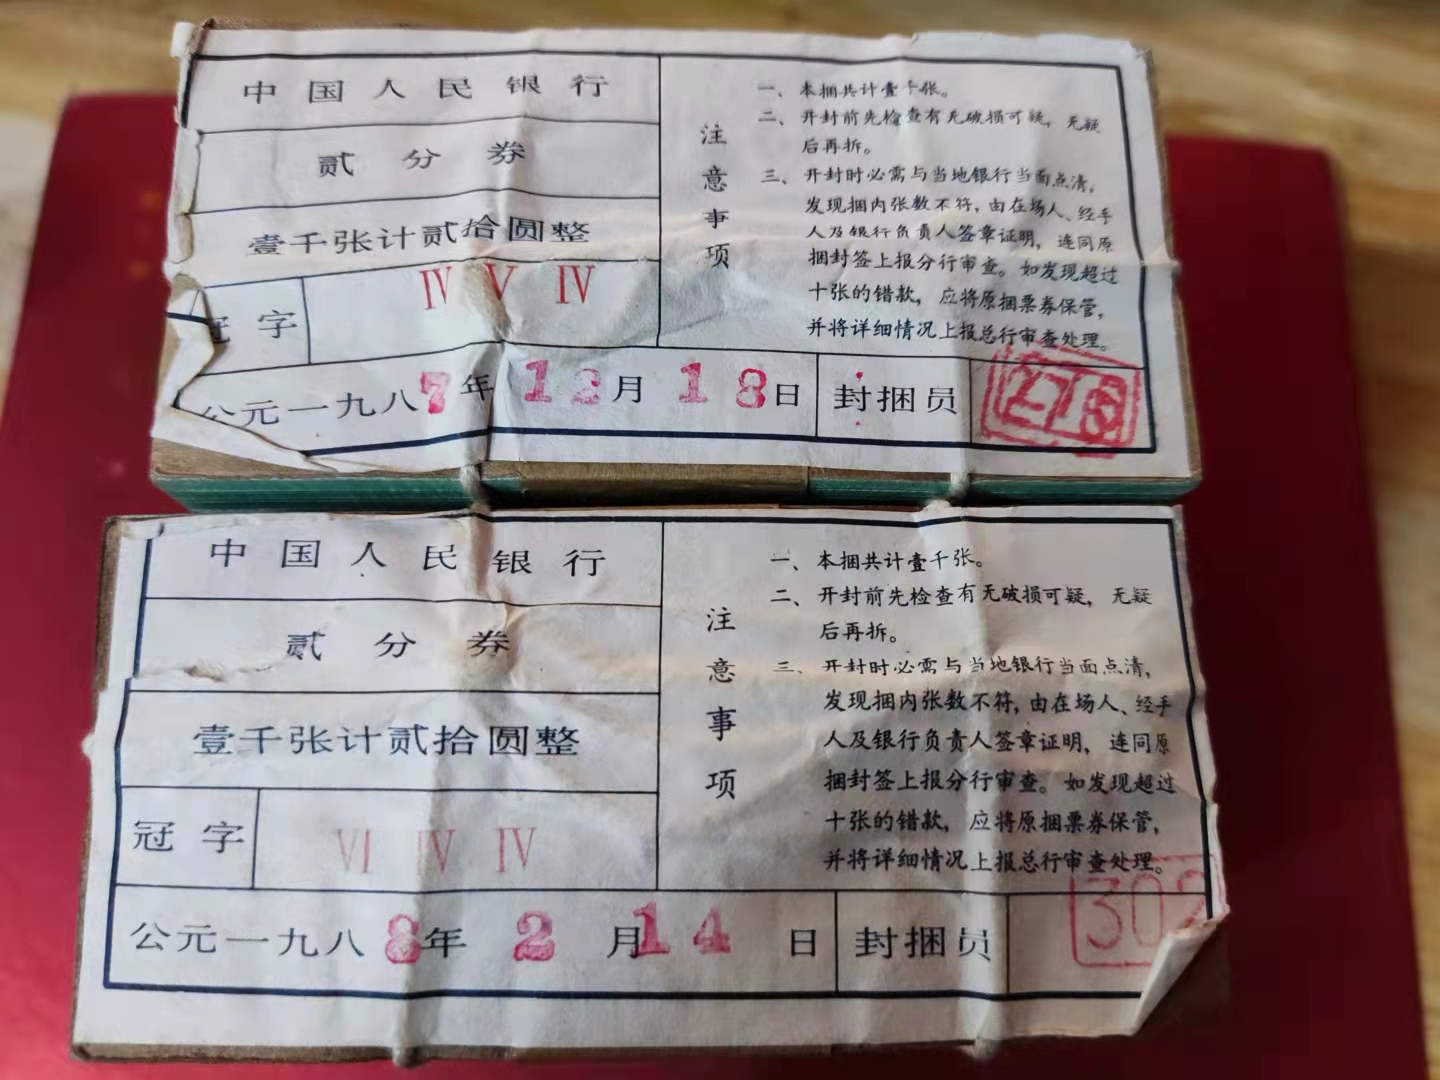 中国人民银行
贰分券
壹千张计贰拾圆整
冠字 IV V IV
公元一九八7年12月18日 封捆员 276
注意事项
一、本捆共计壹千张。
二、开封前先检查有无破损可疑，无疑
后再拆。
三、开封时必需与当地银行当面点清，
发现捆内张数不符，由在场人、经手
人及银行负责人签章证明，连同原
捆封签上报分行审查。如发现超过
十张的错款，应将原捆票券保管，
并将详细情况上报总行审查处理。
中国人民银行
贰分券
壹千张计贰拾圆整
冠字 VI IV IV
公元一九八8年2月14日 封捆员 302
注意事项
一、本捆共计壹千张。
二、开封前先检查有无破损可疑，无疑
后再拆。
三、开封时必需与当地银行当面点清，
发现捆内张数不符，由在场人、经手
人及银行负责人签章证明，连同原
捆封签上报分行审查。如发现超过
十张的错款，应将原捆票券保管，
并将详细情况上报总行审查处理。